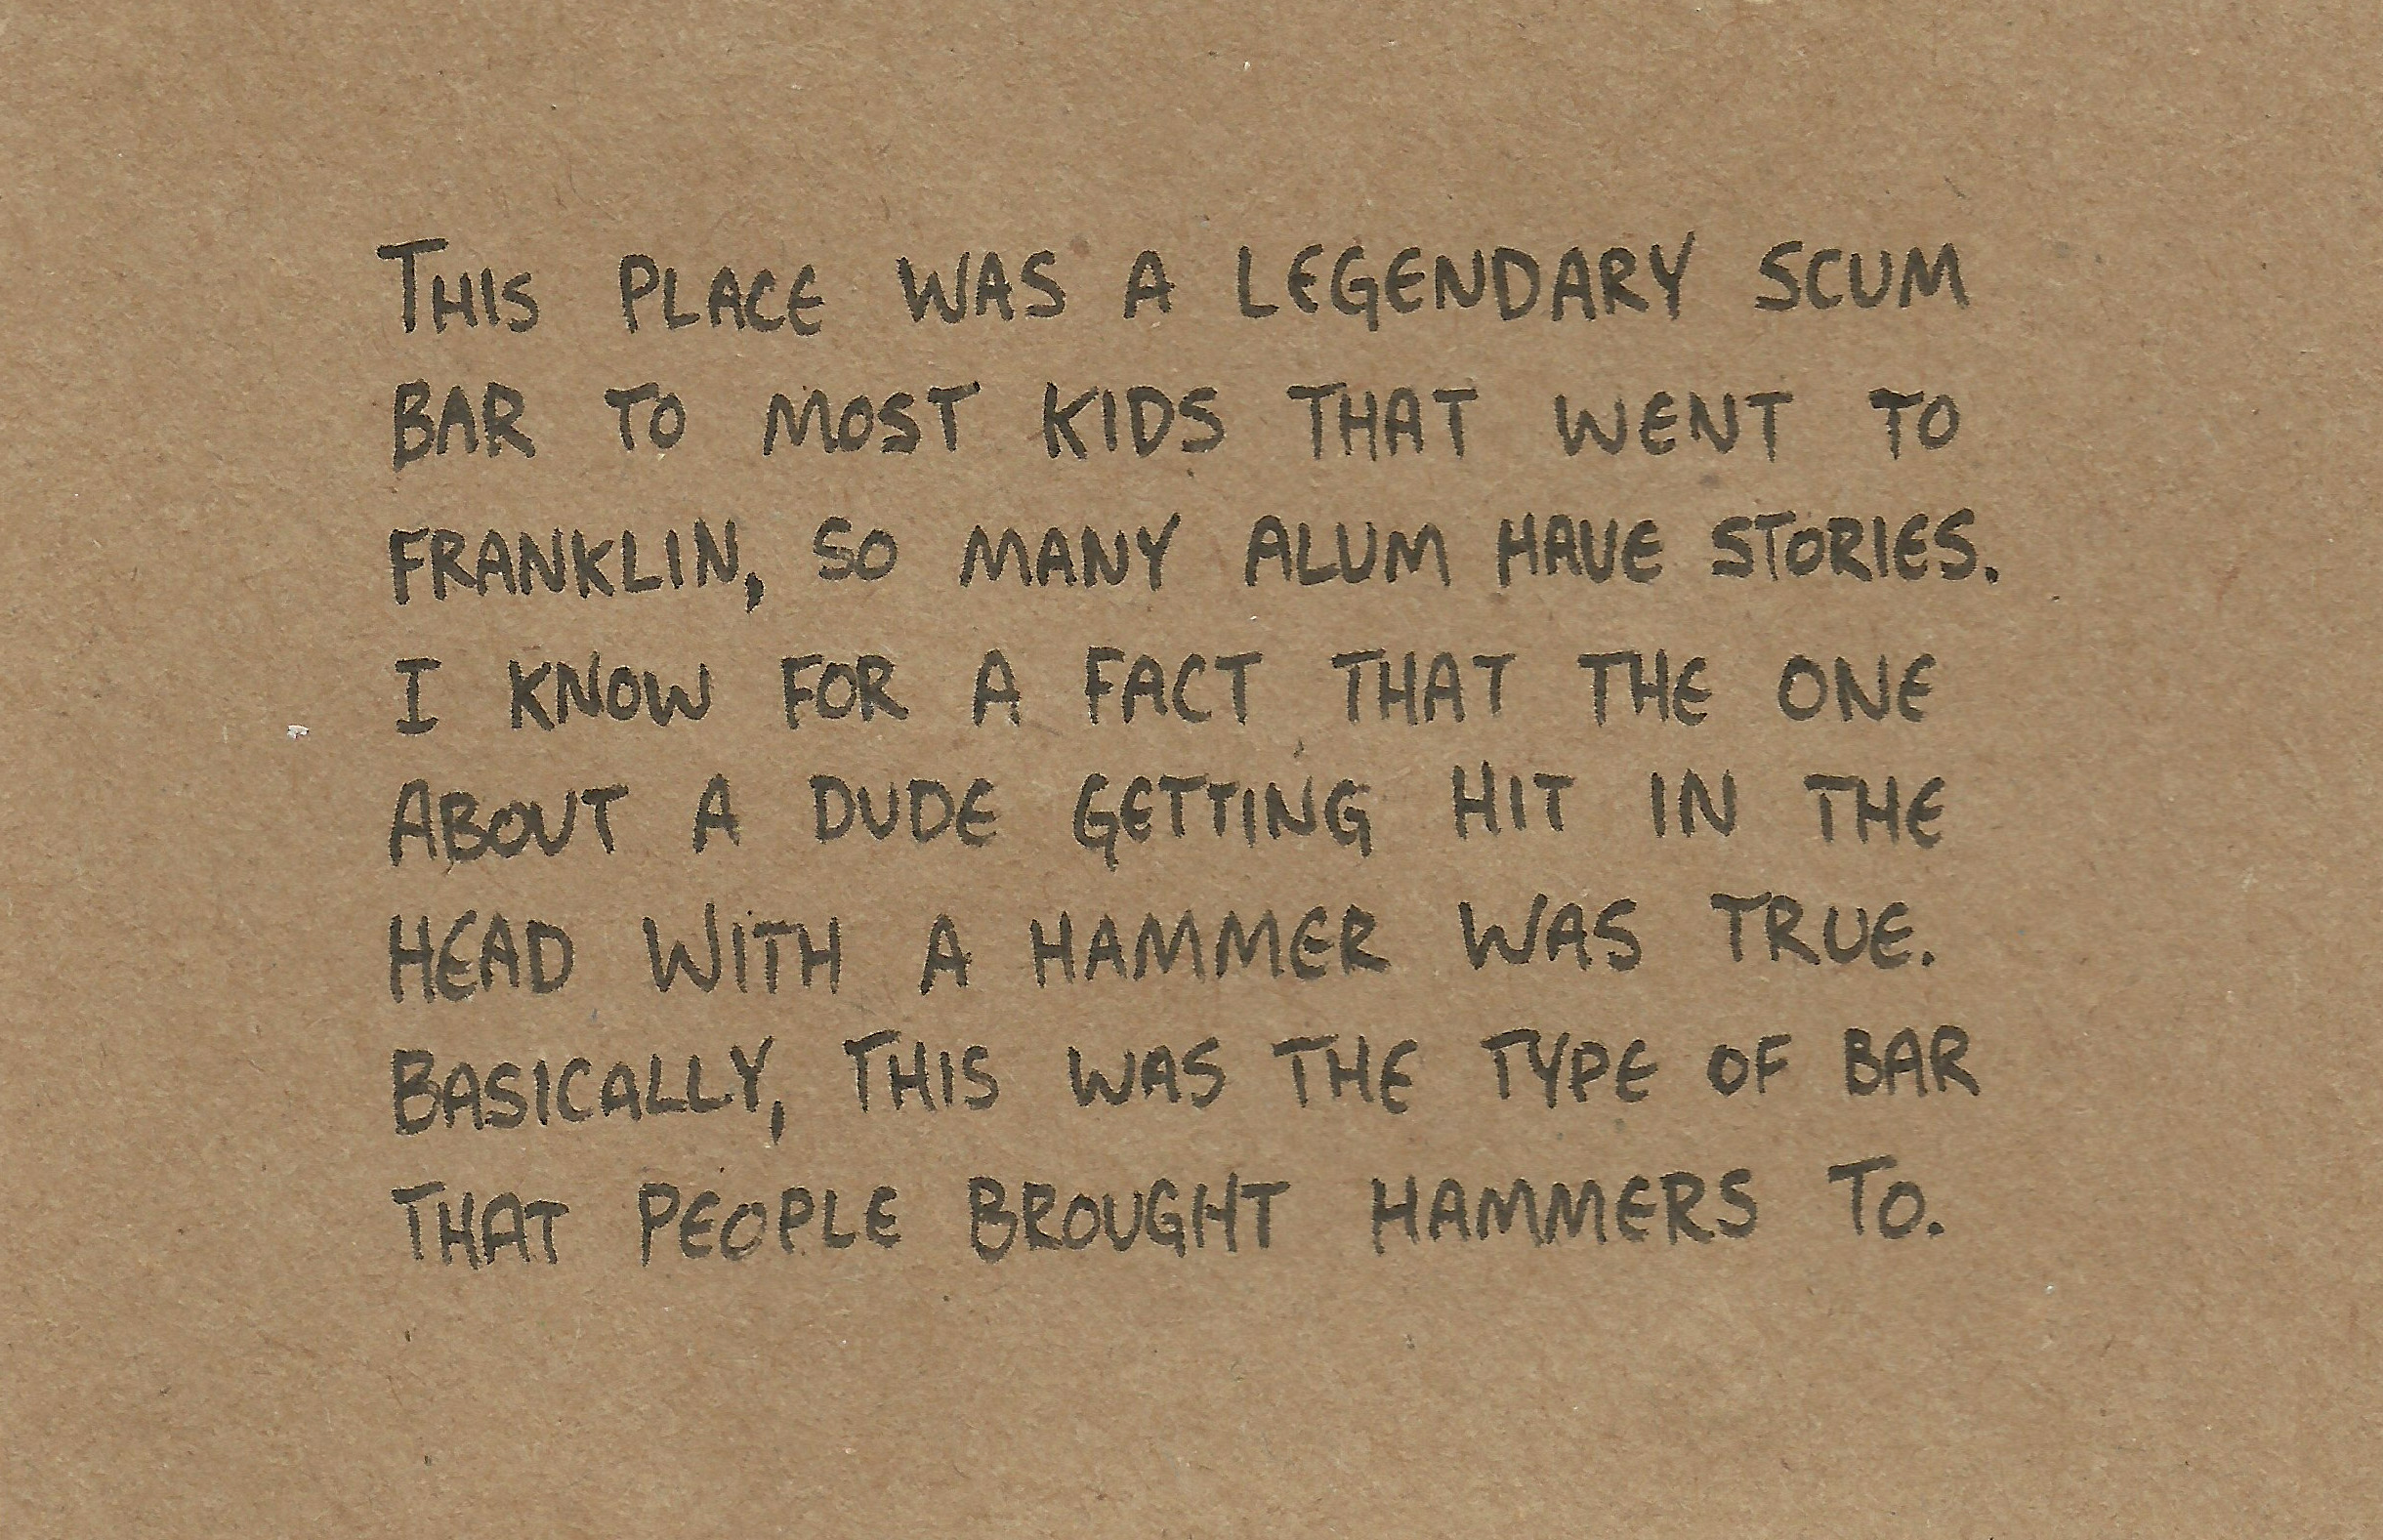 THIS PLACE WAS A LEGENDARY SCUM
BAR TO MOST KIDS THAT WENT TO
FRANKLIN, SO MANY ALUM HAVE STORIES.
I KNOW FOR A FACT THAT THE ONE
ABOUT A DUDE GETTING HIT IN THE
HEAD WITH A HAMMER WAS TRUE.
BASICALLY, THIS WAS THE TYPE OF BAR
THAT PEOPLE BROUGHT HAMMERS TO.